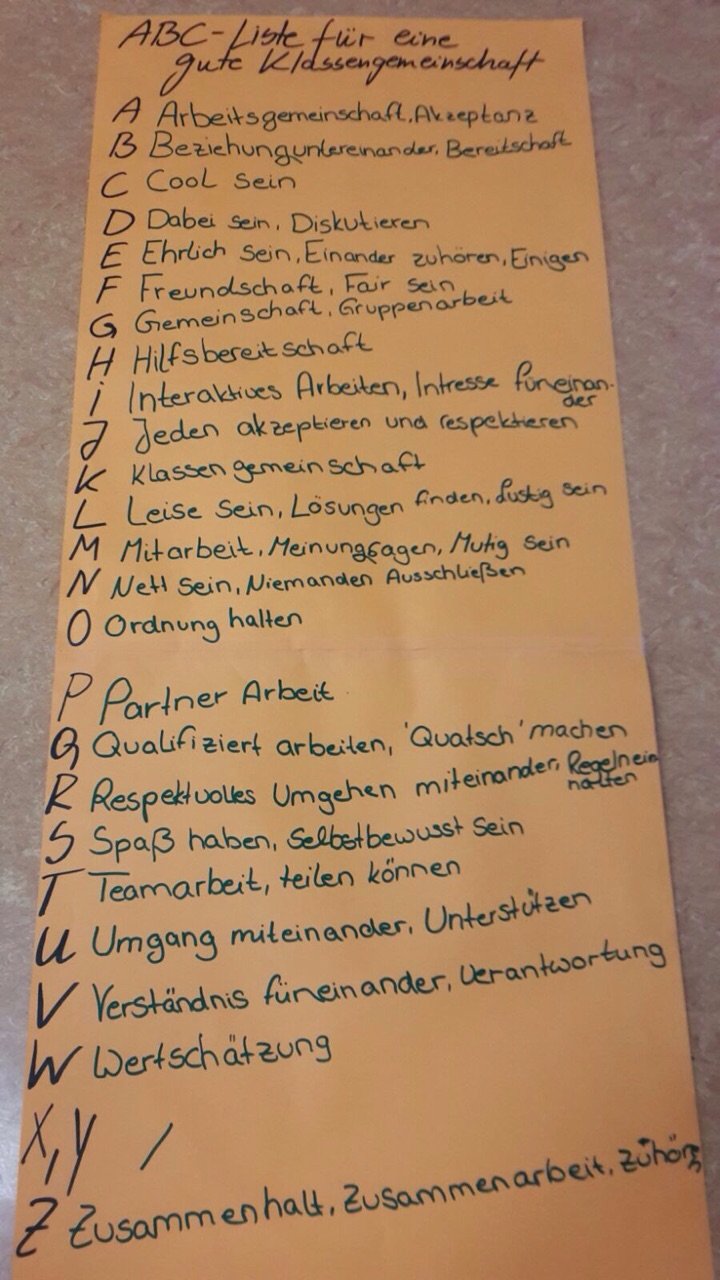 ABC-Liste für eine
gute Klassengemeinschaft
A Arbeitsgemeinschaft, Akzeptanz
B Beziehung untereinander, Bereitschaft
C Cool sein
D Dabei sein, Diskutieren
E Ehrlich sein, Einander zuhören, Einigen
F Freundschaft, Fair sein
G Gemeinschaft, Gruppenarbeit
H Hilfsbereitschaft
i Interaktives Arbeiten, Intresse füreinan-
der
J Jeden akzeptieren und respektieren
K Klassengemeinschaft
L Leise sein, Lösungen finden, Lustig sein
M Mitarbeit, Meinungsagen, Mutig sein
N Nett sein, Niemanden Ausschließen
O Ordnung halten
P Partner Arbeit
Q Qualifiziert arbeiten, 'Quatsch' machen
R Respektvolles Umgehen miteinander, Regeln ein
halten
S Spaß haben, Selbstbewusst sein
T Teamarbeit, teilen können
U Umgang miteinander, Unterstützen
V Verständnis füreinander, Verantwortung
W Wertschätzung
X, Y /
Z Zusammenhalt, Zusammenarbeit,